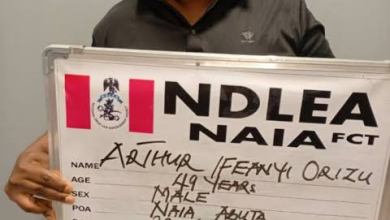 NDLEA
NAIA FCT
NAME ARTHUR IFEANYI ORIZU
AGE 49 YEARS
SEX MALE
POA NAIA, ABUJA